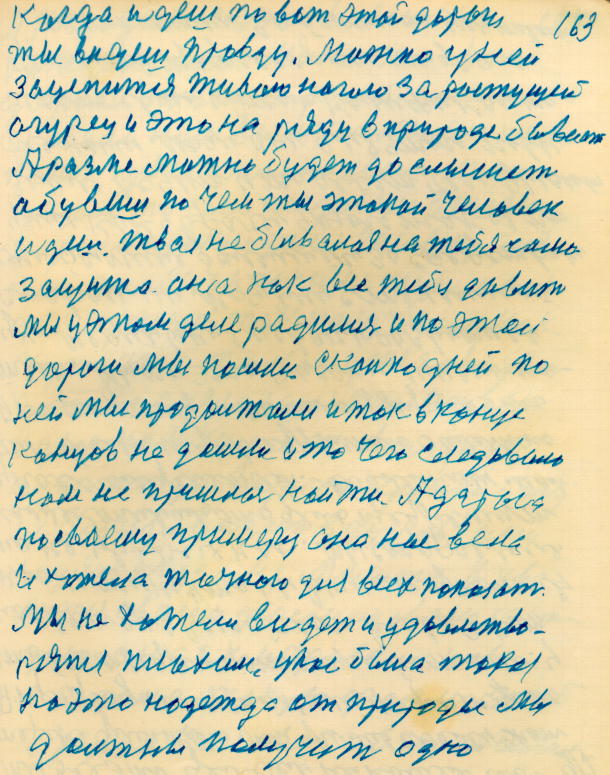 163
Когда идеш по вот этой дороги
ты видеш правду. Можно у ней
зацепится живою ногою за ростущей
огурец и это на ряду в природе бывает
А разве можно будет до слышет
обувши по чем ты этакой человек
идеш. твая не бывалая на тебя
защита она нас все тебя давит
мы у этом деле радилися и по этой
дороги мы пошли. Сколко дней по
ней мы продолжали и так в конце
концов не дошли и то чего следовало
нам не пришлося найти. А дарога
по своему примеру она нас вела
и хотела точного для всех показат.
Мы не хотели видет и удовлетво-
рятся плохим, у нас была такая
на это надежда от природы мы
должны получит одно